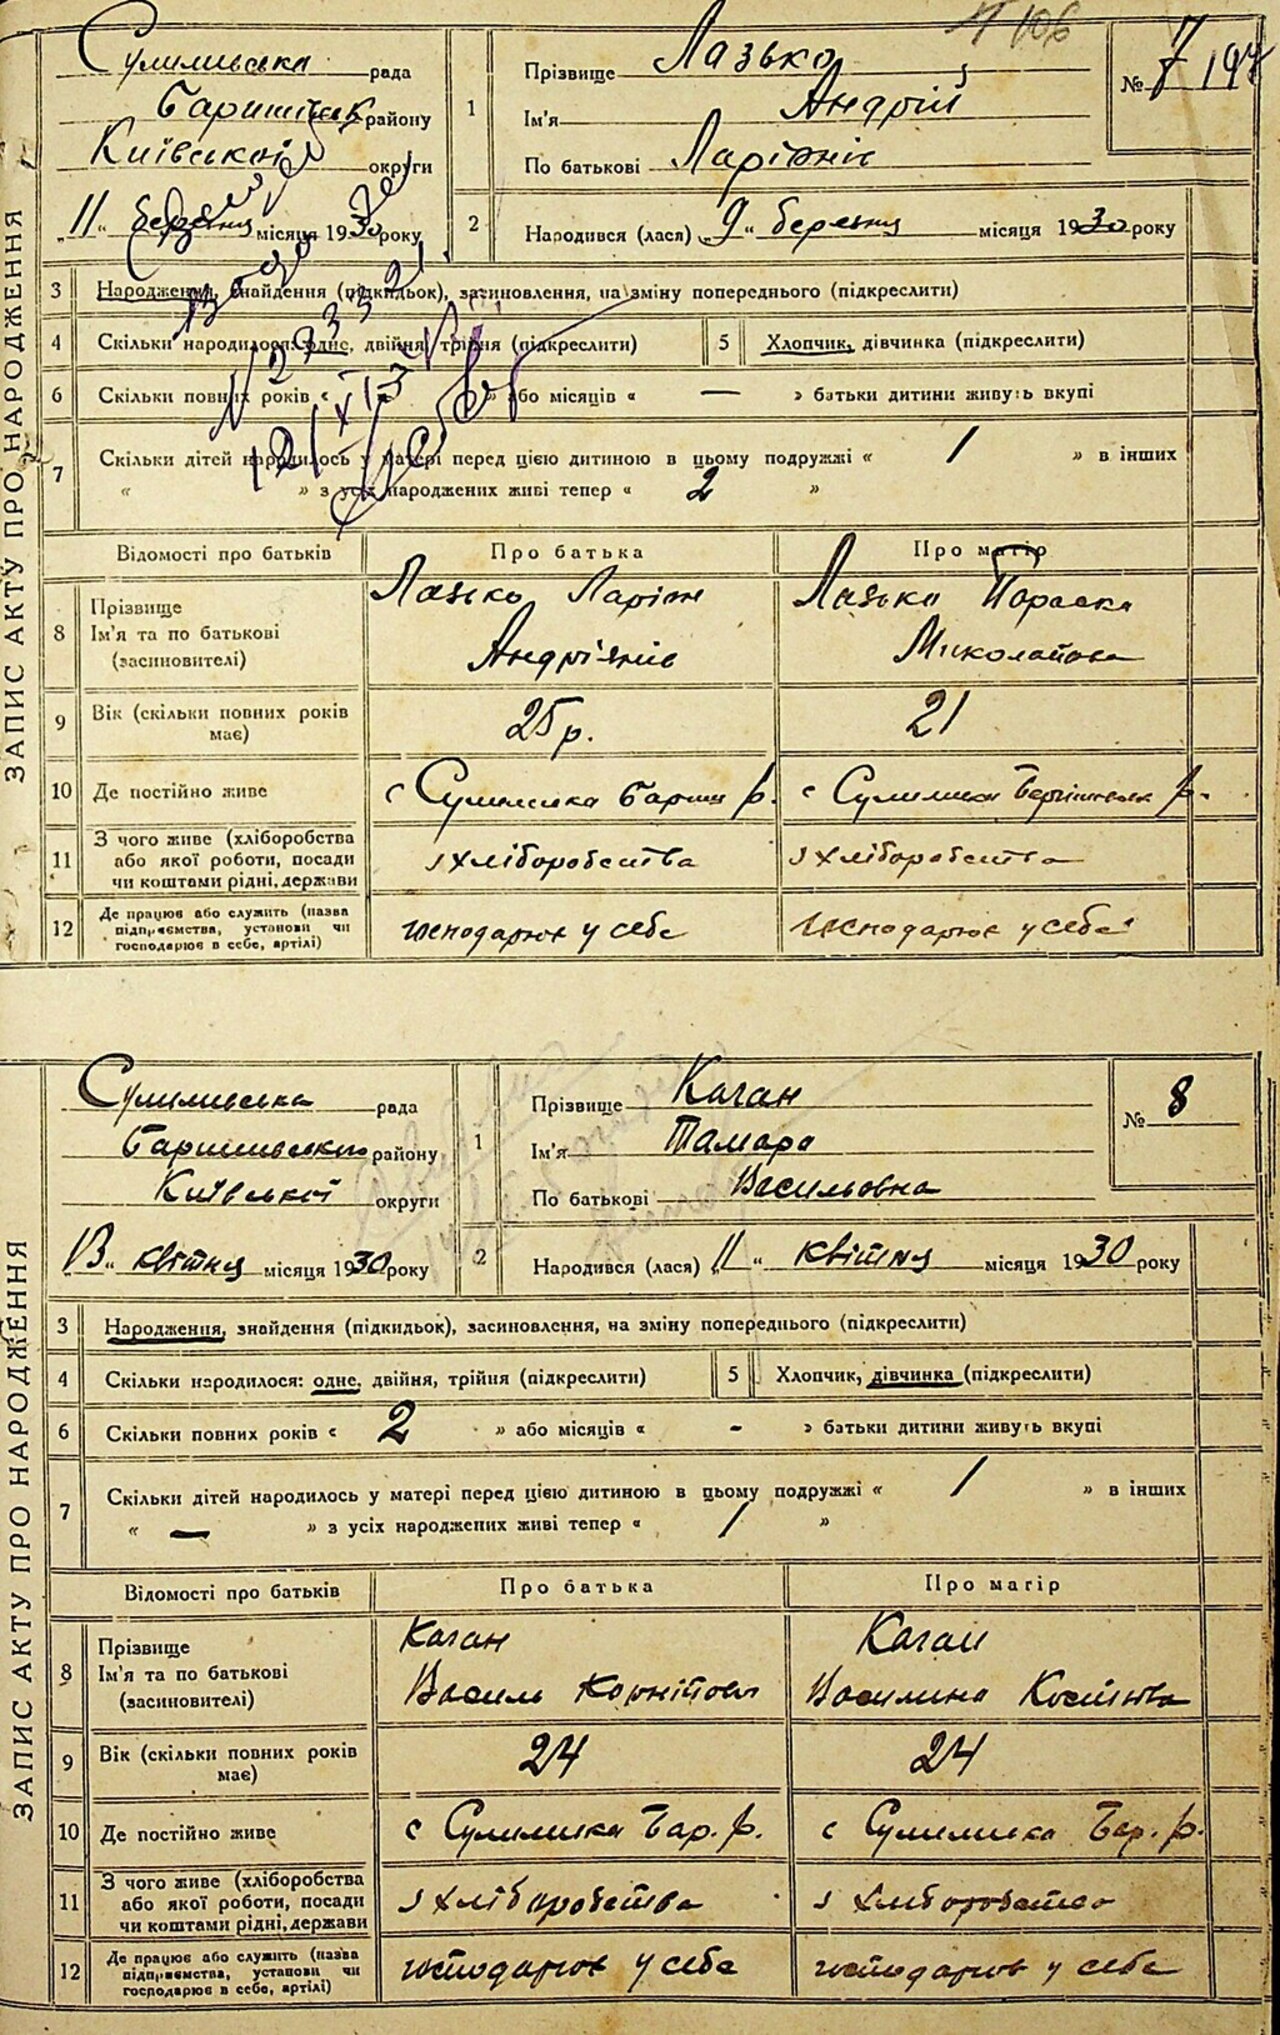 № 106
Сулимівська рада
Баришівськ району
Київської округи
„11“ березня місяця 1930 року
1
Прізвище Лазько
Ім'я Андрій
По батькові Ларіонів
№ 7
2
Народився (лася) „9“ березня місяця 1930 року
ЗАПИС АКТУ ПРО НАРОДЖЕННЯ
3 Народження, знайдення (підкидьок), засиновлення, на зміну попереднього (підкреслити)
4 Скільки народилося: одне, двійня, трійня (підкреслити)
5 Хлопчик, дівчинка (підкреслити)
6 Скільки повних років « » або місяців « — » батьки дитини живуть вкупі
7 Скільки дітей народилось у матері перед цією дитиною в цьому подружжі « 1 » в інших
« » з усіх народжених живі тепер « 2 »
Відомості про батьків Про батька Про матір
8 Прізвище
Ім'я та по батькові
(засиновителі)
Лазько Ларіон
Андріянів
Лазько Параска
Миколаївна
9 Вік (скільки повних років має) 25 р. 21
10 Де постійно живе с Сулимівка Бариш р. с Сулимівка р.
11 З чого живе (хліборобства
або якої роботи, посади
чи коштами рідні, держави
з хліборобства з хліборобства
12 Де працює або служить (назва
підприємства, установи чи
господарює в себе, артілі)
господарює у себе господарює у себе
Сулимівська рада
Баришівського району
Київської округи
„13“ квітня місяця 1930 року
1
Прізвище Каган
Ім'я Тамара
По батькові Васильовна
№ 8
2
Народився (лася) „11“ квітня місяця 1930 року
ЗАПИС АКТУ ПРО НАРОДЖЕННЯ
3 Народження, знайдення (підкидьок), засиновлення, на зміну попереднього (підкреслити)
4 Скільки народилося: одне, двійня, трійня (підкреслити)
5 Хлопчик, дівчинка (підкреслити)
6 Скільки повних років « 2 » або місяців « - » батьки дитини живуть вкупі
7 Скільки дітей народилось у матері перед цією дитиною в цьому подружжі « 1 » в інших
« — » з усіх народжених живі тепер « 1 »
Відомості про батьків Про батька Про матір
8 Прізвище
Ім'я та по батькові
(засиновителі)
Каган
Василь
Каган
Василина
9 Вік (скільки повних років має) 24 24
10 Де постійно живе с Сулимівка Бар. р. с Сулимівка Бар. р.
11 З чого живе (хліборобства
або якої роботи, посади
чи коштами рідні, держави
з хліборобства з хліборобства
12 Де працює або служить (назва
підприємства, установи чи
господарює в себе, артілі)
господарює у себе господарює у себе